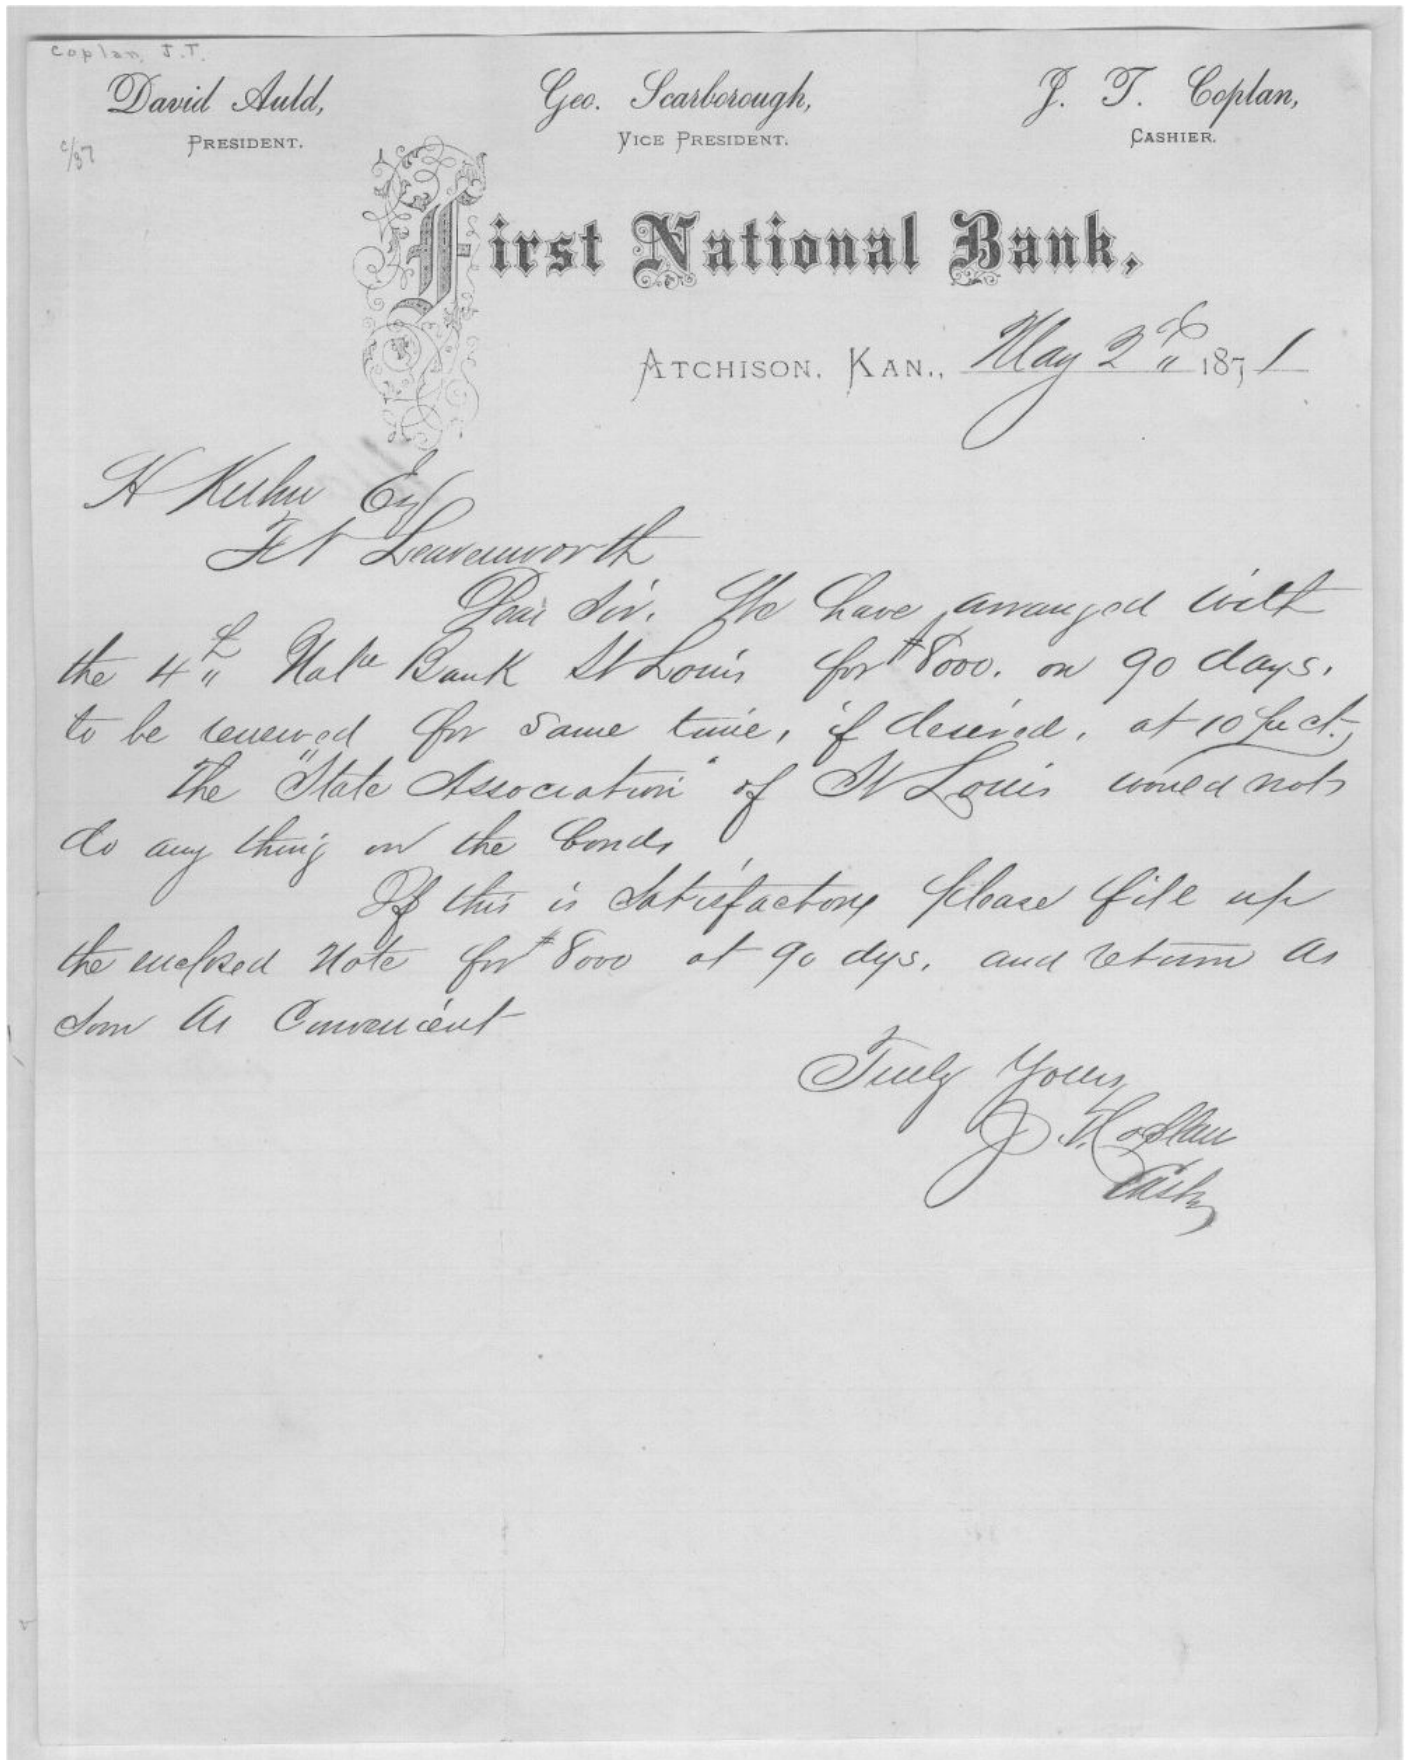 Coplan, J.T.
David Auld, Geo. Scarborough, J. T. Coplan,
PRESIDENT. VICE PRESIDENT. CASHIER.
c/37
First National Bank,
ATCHISON, KAN., May 2d 1871
H Kuhn Esq
Ft Leavenworth
Dear Sir. We have arranged with
the 4th Natl Bank St Louis for $8000. on 90 days.
to be renewed for same time, if desired, at 10 per ct.
The "State Association" of St Louis would not
do any thing on the bonds
If this is satisfactory please fill up
the enclosed Note for $8000 at 90 dys. and return as
soon as Convenient
Truly Yours
J. T. Coplan
Cash